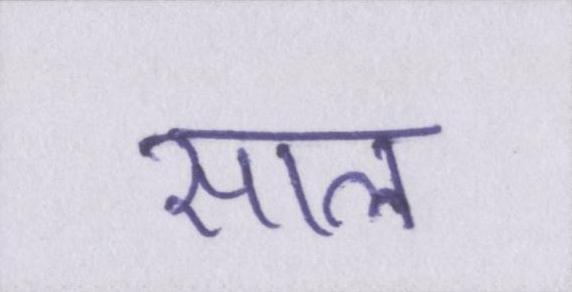 साल